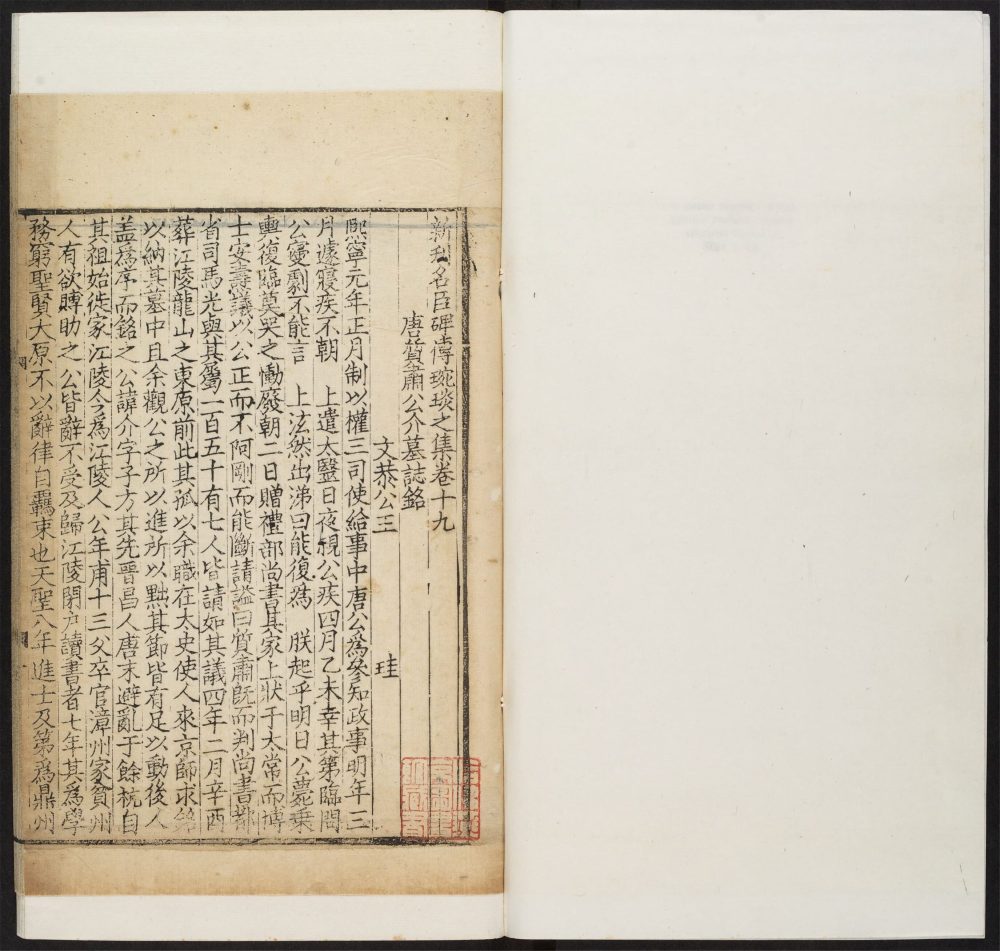 新刊名臣碑傳琬琰之集卷十九
唐質肅公介墓誌銘
文恭公王 珪
熙寧元年正月制以權三司使給事中唐公為參知政事明年三
月遽寢疾不朝 上遣太醫日夜視公疾四月乙未幸其第臨問
公寖劇不能言 上泫然出涕曰能復為 朕起乎明日公薨乘
輿復臨奠哭之慟廢朝二日贈禮部尚書其家上狀于太常而博
士安壽議以公正而不阿剛而能斷請謚曰質肅既而判尚書都
省司馬光與其屬一百五十有七人皆請如其議四年二月辛酉
葬江陵龍山之東原前此其孤以余職在太史使人來京師求銘
以納其墓中且余觀公之所以進所以黜其節皆有足以動後人
盖為序而銘之公諱介字子方其先晉昌人唐末避亂于餘杭自
其祖始徙家江陵今為江陵人公年甫十三父卒官漳州家貧州
人有欲賻助之公皆辭不受及歸江陵閉户讀書者七年其為學
務窮聖賢大原不以辭律自羈束也天聖八年進士及第為鼎州